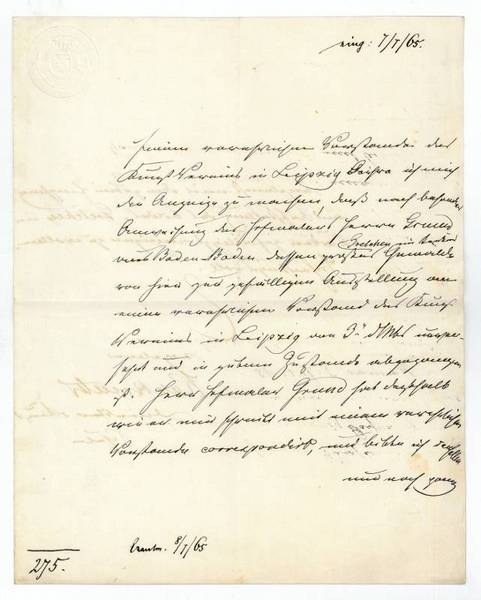 eing: 7/7/65.
Einem verehrlichen Vorstande des
Kunst Vereins in Leipzig beehre ich mich
die Anzeige zu machen, daß nach besonderer
Anweisung des Hofmalers Herrn Grund
aus Baden-Baden dessen großes Gemälde
Gretchen im Kerker
von hier zur gefälligen Ausstellung an
einen verehrlichen Vorstand des Kunst
Vereins in Leipzig am 3. d. Mts unver-
sehrt und in gutem Zustande abgegangen
ist. Herr Hofmaler Grund hat deshalb
wie er mir schreibt mit einem verehrlichen
Vorstande correspondirt, und bitte ich
und noch ganz
beantw. 8/7/65
275.